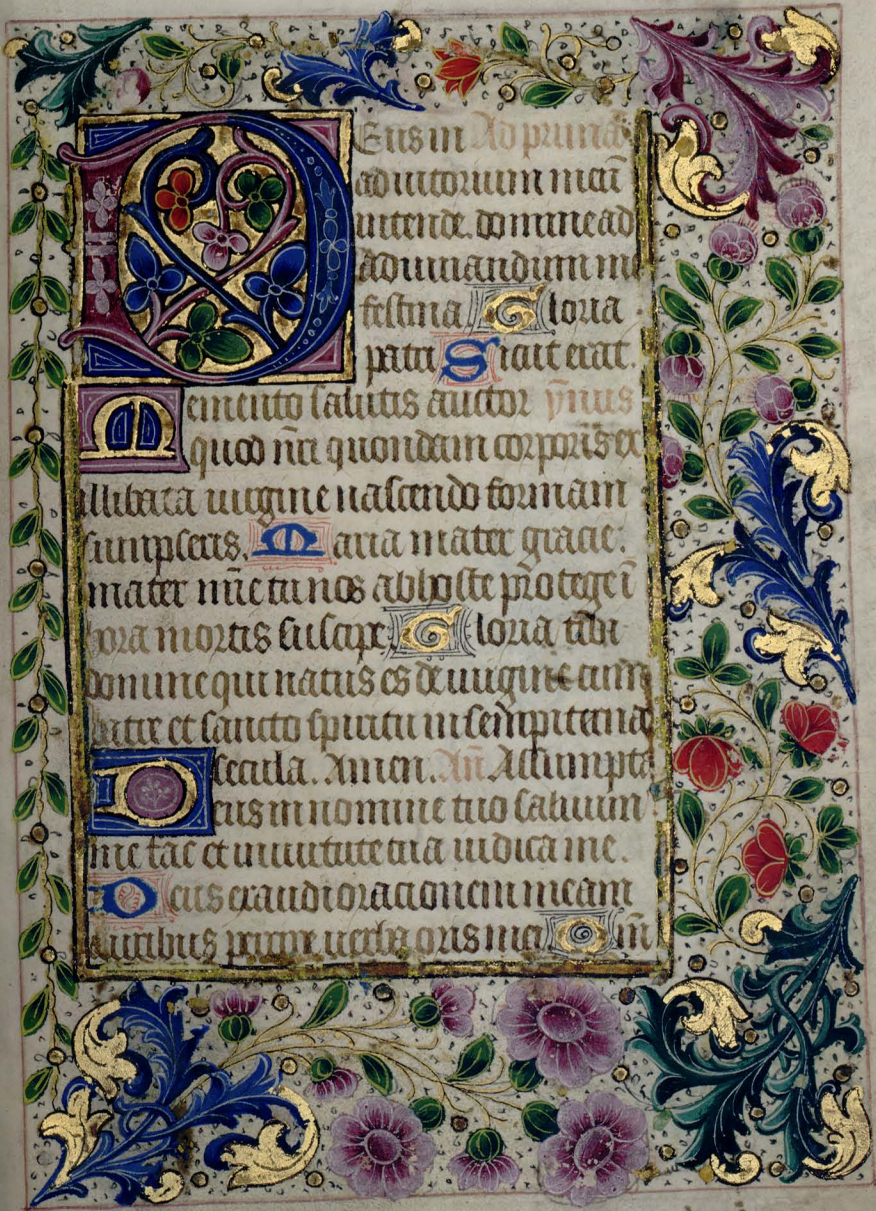 Deus in Ad prima
adiutorium meū
intende. domine ad
adiuuandum me
festina Gloria
patri Sicut erat.
Memento salutis auctor ymus
quod n̄i quondam corporis ex
illibata uirgine nascendo formam
sumpseris. Maria mater gracie.
mater mīe tu nos ab hoste protege ī
ora mortis suscipe Gloria tibi
domine qui natus es de uirgine cum
patre et sancto spiritu in sempiterna
secula. Amen. Añ. Assumpta
Deus in nomine tuo saluum
me fac et in uirtute tua iudica me.
Deus exaudi oracionem meam
auribus percipe uerba oris mei Qm̄